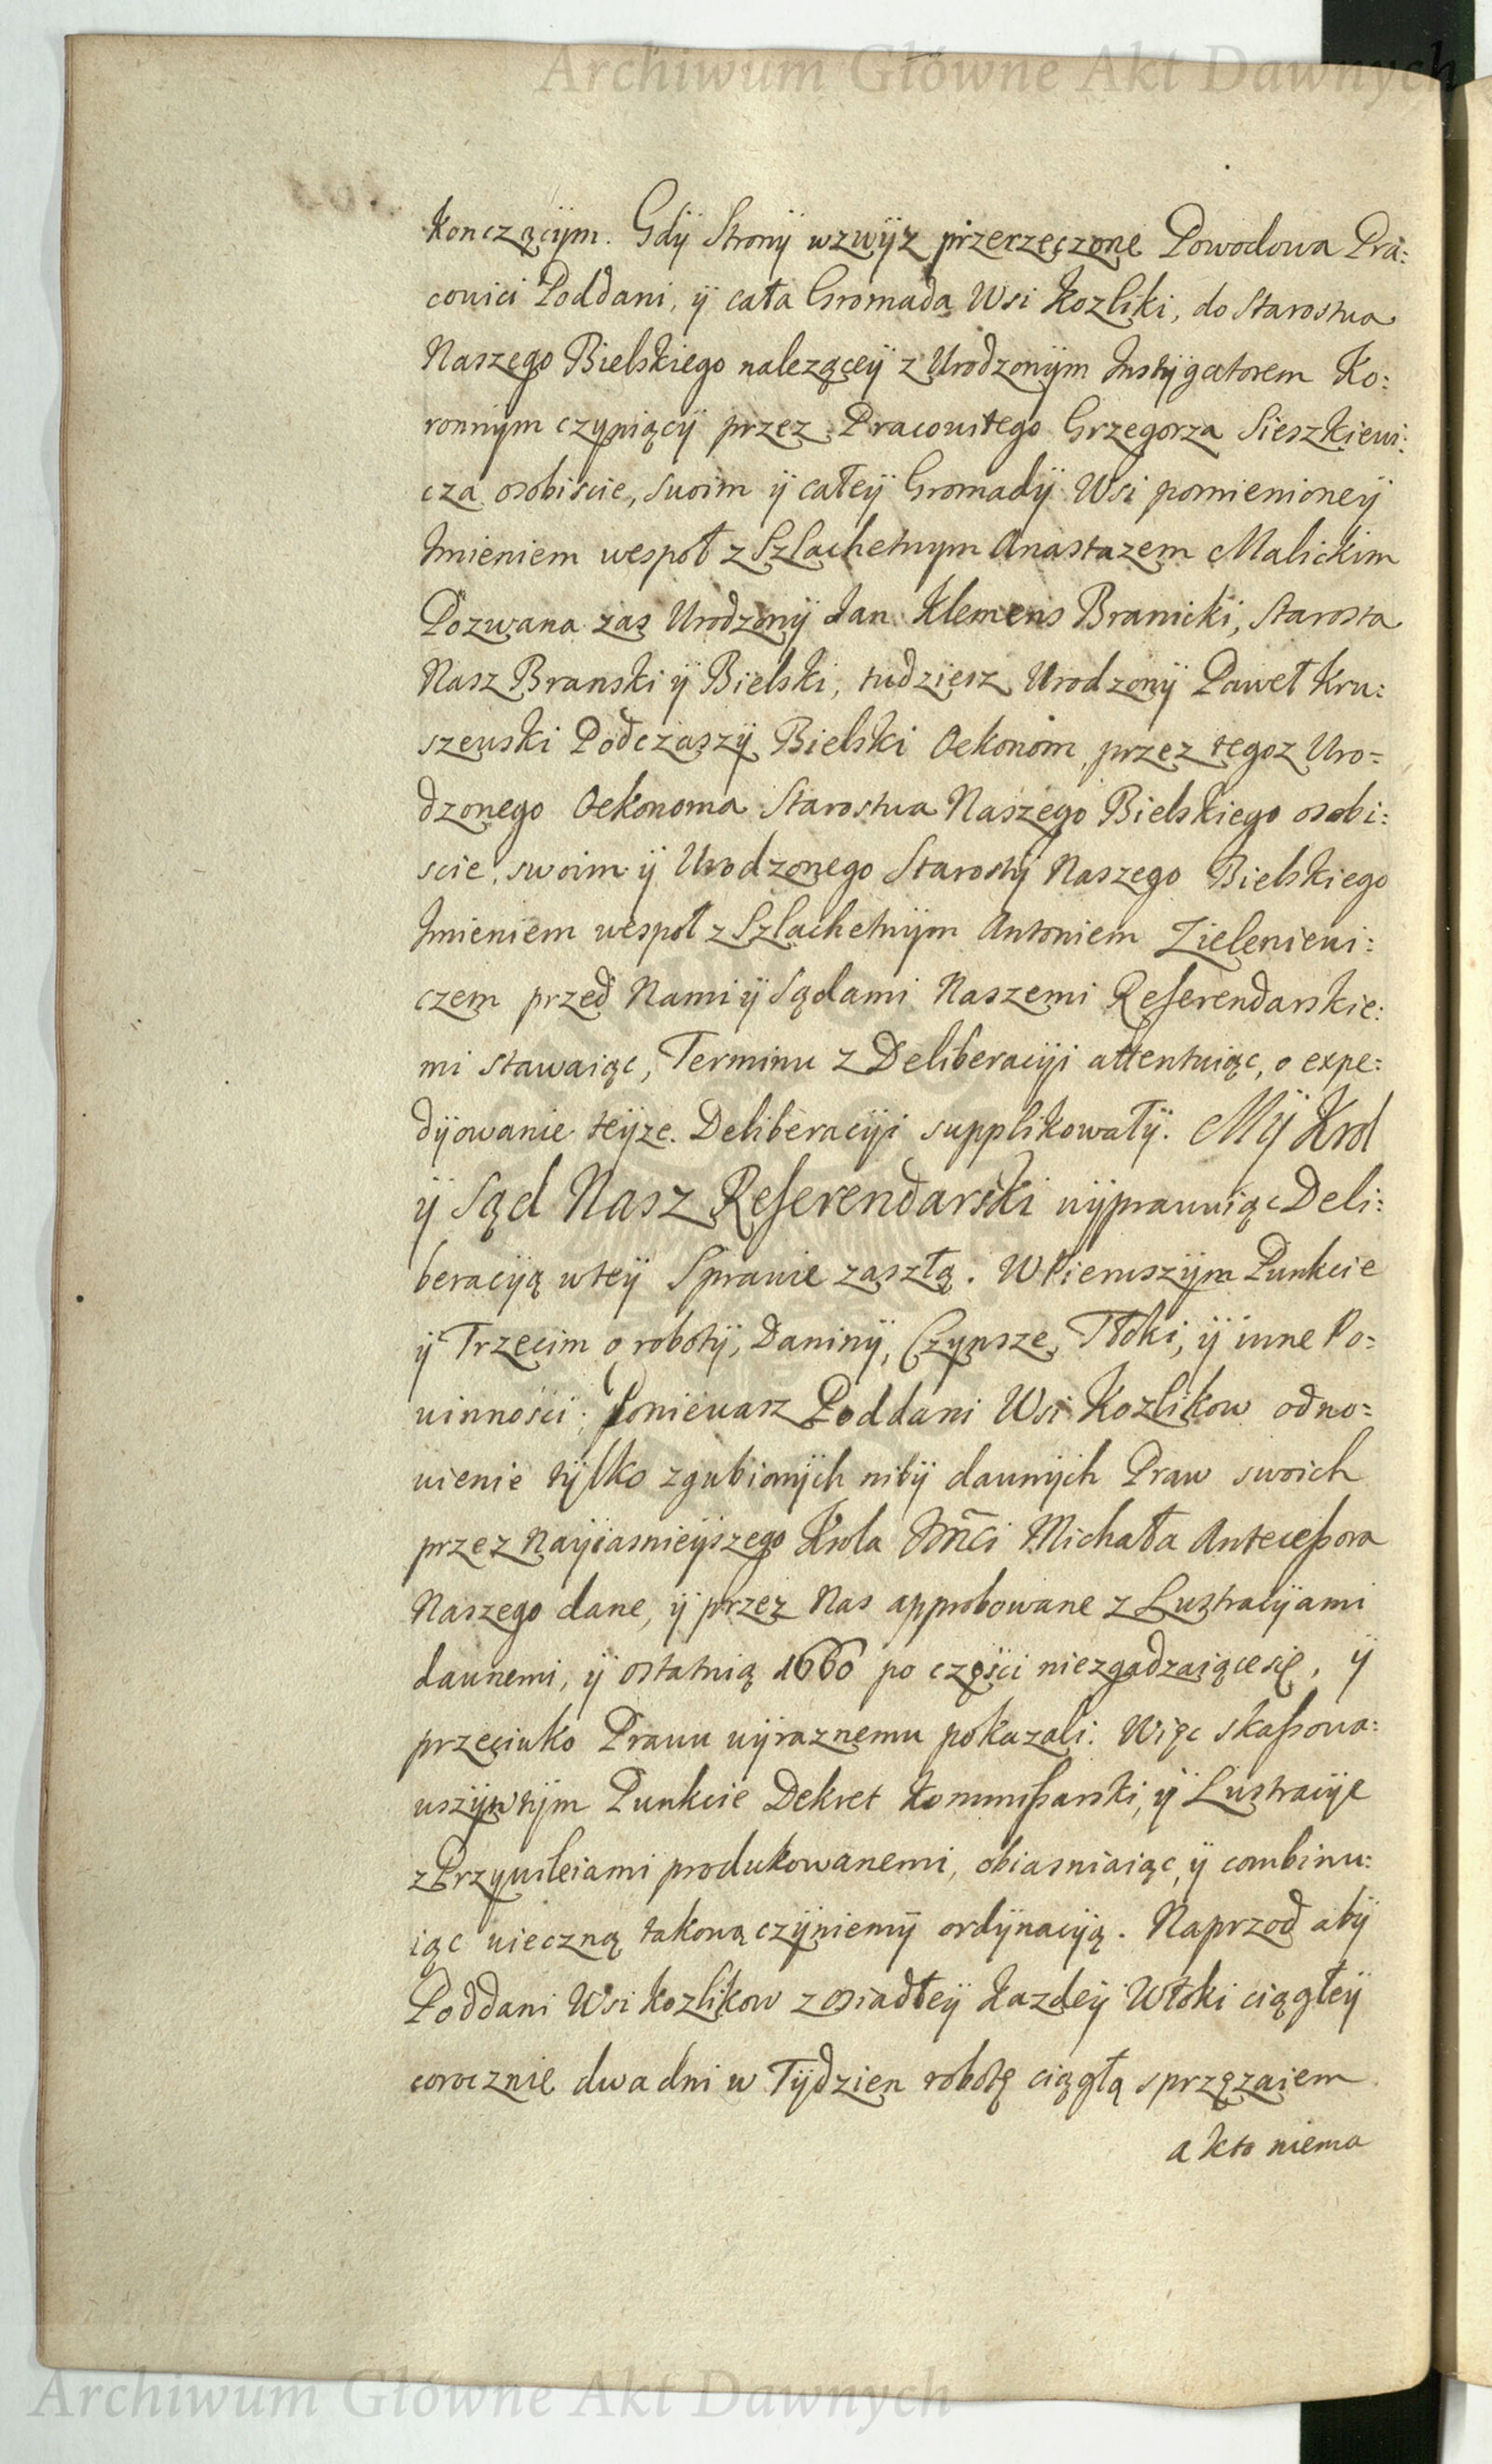 Archiwum Główne Akt Dawnych
Konczącÿm. Gdÿ Stronÿ wzwÿż przerzeczone Powodowa Pra:
cowici Poddani, ÿ cała Gromada Wsi Kozliki, do Starostwa
Naszego Bielskiego nalezącey z Urodzonÿm Instÿgatorem Ko:
ronnÿm czyniącÿ przez Pracowitego Grzegorza Sieszkiewi:
cza osobiscie, swoim ÿ całeÿ Gromadÿ Wsi pomienioneÿ
Imieniem wespoł z Szlachetnym Anastazem Malickim
Pozwana zas Urodzonÿ Jan Klemens Branicki, Starosta
Nasz Branski ÿ Bielski, tudziesz Urodzonÿ Paweł Kru:
szewski Podczaszÿ Bielski Oekonom, przez tegoz Uro=
dzonego Oekonoma Starostwa Naszego Bielskiego osobi:
scie, swoim ÿ Urodzonego Starostÿ Naszego Bielskiego
Imieniem wespoł z Szlachetnÿm Antoniem Zieleniewi:
czem przed Nami ÿ Sądami Naszemi Referendarskie:
mi stawaiąc, Terminu z Deliberacÿi attentuiąc, o expe:
dÿowanie teÿze Deliberacÿi supplikowałÿ. Mÿ Krol
ÿ Sąd Nasz Referendarski wÿprawuiąc Deli:
beracÿą w teÿ Sprawie zaszłą. W Pierwszÿm Punkcie
ÿ Trzecim o robotÿ, Daninÿ, Czynsze, Tłoki, ÿ inne Po=
winności; Ponieważ Poddani Wsi Kozlikow odno=
wienie tÿlko zgubionÿch nibÿ dawnÿch Praw swoich
przez Naÿiasnieÿszego Krola Jm̃ci Michała Antecessora
Naszego dane, ÿ przez Nas approbowane z Lustracÿami
dawnemi, ÿ ostatnią 1660 po części niezgadzaiące się, ÿ
przeciwko Prawu wÿraznemu pokazali. Więc skassowa:
wszÿ w tÿm Punkcie Dekret Kommissarski, ÿ Lustracÿe
z Przywileiami produkowanemi, obiasniaiąc, ÿ combinu:
iąc wieczną takową czÿniemÿ ordÿnacÿą. Naprzod abÿ
Poddani Wsi Kozlikow z osiadłeÿ każdeÿ Włoki ciągłeÿ
corocznie dwa dni w Tÿdzien robotę ciągłą sprzężaiem
a kto niema
Archiwum Główne Akt Dawnych